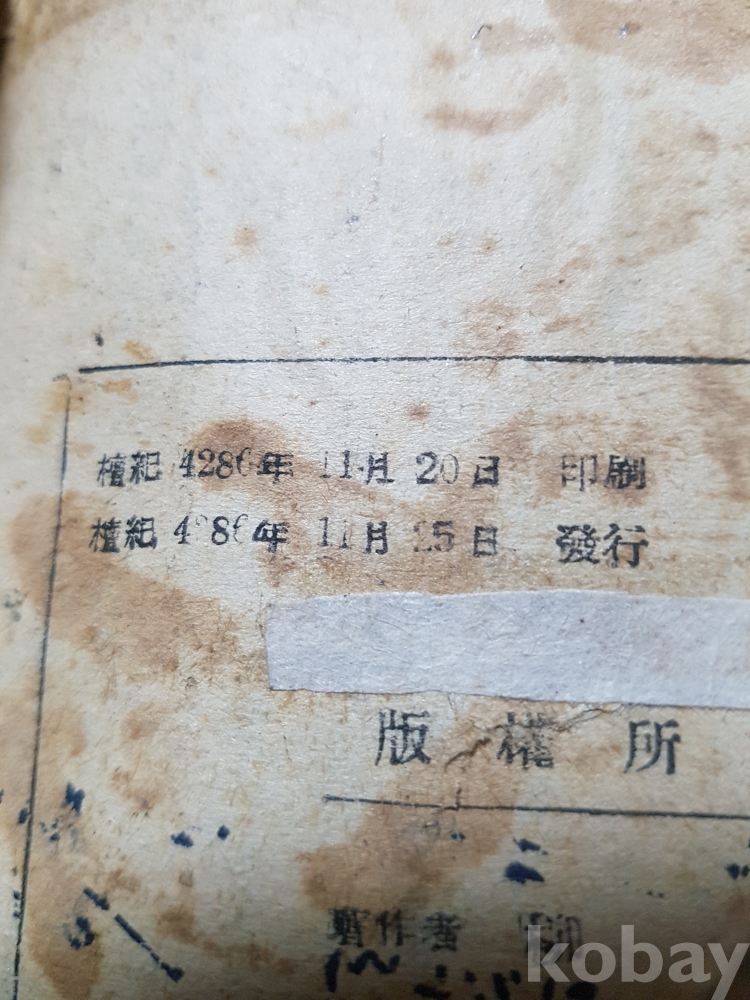 檀紀 4286年 11月 20日 印刷
檀紀 4286年 11月 25日 發行
版權所
著作者
kobay